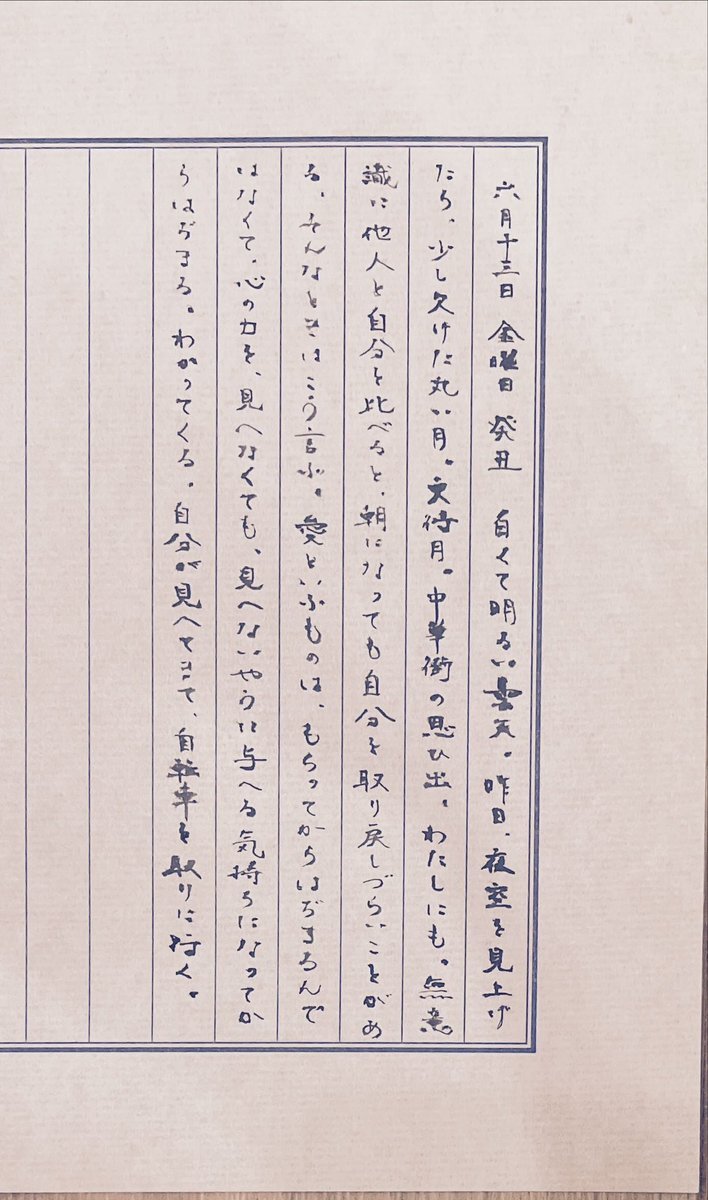 六月十三日 金曜日 癸丑 白くて明るい曇天。昨日、夜空を見上げ
たら、少し欠けた丸い月。文待月。中華街の思ひ出。わたしにも。無意
識に他人と自分を比べると、朝になっても自分を取り戻しづらいことがあ
る。そんなときはこう言ふ。愛といふものは、もらってからはぢまるんで
はなくて、心の力を、見へなくても、見へないやうに与へる気持ちになってか
らはぢまる。わかってくる。自分が見へてきて、自転車を取りに行く。